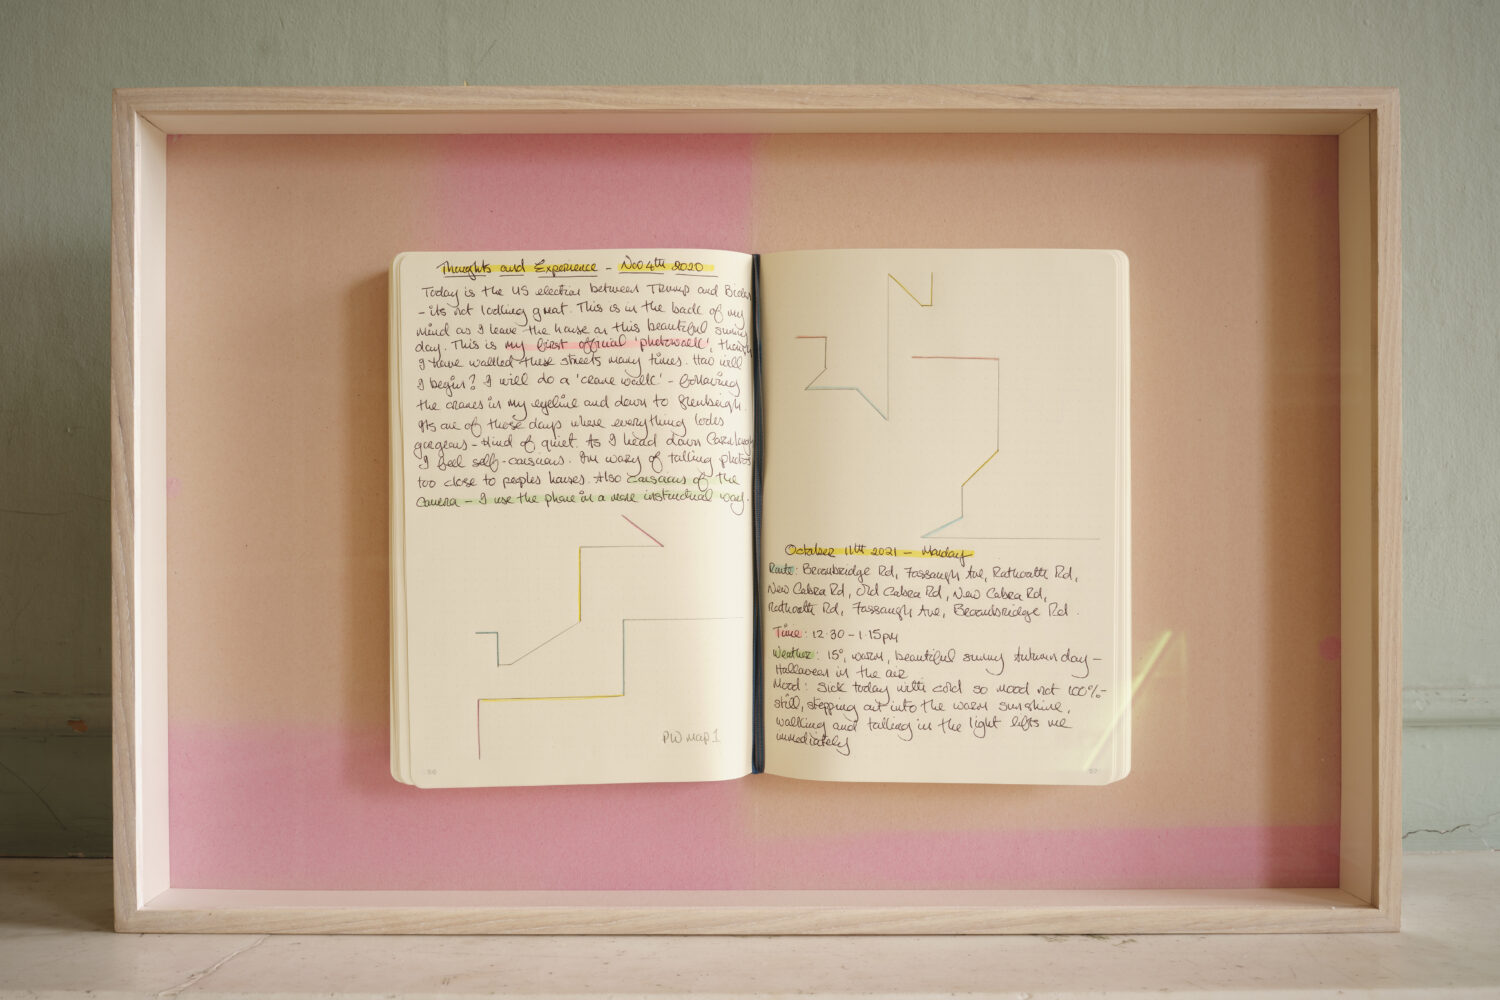 Thoughts and Experience - Nov 4th 2020
Today is the US election between Trump and Biden
- its not looking great. This is in the back of my
mind as I leave the house on this beautiful sunny
day. This is my first official 'photowalk', though
I have walked these streets many times. How will
I begin? I will do a 'crane walk' - following
the cranes in my eyeline and down to
Its one of those days where everything looks
gorgeous - kind of quiet. As I head down
I feel self-conscious. Im wary of taking photos
too close to peoples houses. Also conscious of the
camera - I use the phone in a more instinctual way.
PW map 1
56
October 11th 2021 - Monday
Route: Broombridge Rd, Fassaugh Ave, Rathoath Rd,
New Cabra Rd, Old Cabra Rd, New Cabra Rd,
Rathoath Rd, Fassaugh Ave, Broombridge Rd.
Time: 12.30 - 1.15pm
Weather: 15°, warm, beautiful sunny Autumn day -
Halloween in the air
Mood: Sick today with cold so mood not 100% -
still, stepping out into the warm sunshine,
walking and taking in the light lifts me
immediately
57